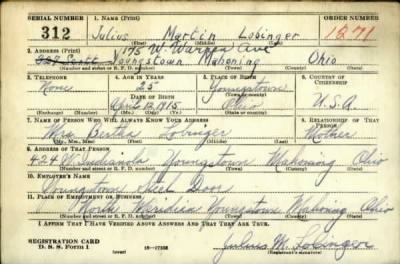 SERIAL NUMBER 1. NAME (Print) ORDER NUMBER (Print)
312 Julius Martin Lobinger 1871
(First) (Middle) (Last)
175 W. Warren Ave
2. ADDRESS (Print)
Youngstown Mahoning Ohio
(Number and street or R. F. D. number) (Town) (County) (State)
3. TELEPHONE 4. AGE IN YEARS 5. PLACE OF BIRTH 6. COUNTRY OF CITIZENSHIP
None 25 Youngstown
DATE OF BIRTH (Town or county)
April 12, 1915 Ohio U.S.A.
(Exchange) (Number) (Mo.) (Day) (Yr.) (State or country)
7. NAME OF PERSON WHO WILL ALWAYS KNOW YOUR ADDRESS 8. RELATIONSHIP OF THAT PERSON
Mrs. Bertha Lobinger Mother
(Mr., Mrs., Miss) (First) (Middle) (Last)
9. ADDRESS OF THAT PERSON
424 W. Indianola Youngstown Mahoning Ohio
(Number and street or R. F. D. number) (Town) (County) (State)
10. EMPLOYER'S NAME
Youngstown Steel Door
11. PLACE OF EMPLOYMENT OR BUSINESS
North Meridian Youngstown Mahoning Ohio
(Number and street or R. F. D. number) (Town) (County) (State)
I AFFIRM THAT I HAVE VERIFIED ABOVE ANSWERS AND THAT THEY ARE TRUE.
REGISTRATION CARD
D. S. S. Form 1 (over) 16-17105 Julius M. Lobinger
(Registrant's signature)